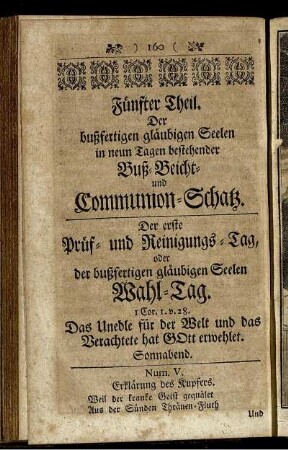 ) 160 (
Fünfter Theil.
Der
bußfertigen gläubigen Seelen
in neun Tagen bestehender
Buß-Beicht-
und
Communion-Schatz.
Der erste
Prüf- und Reinigungs-Tag,
oder
der bußfertigen gläubigen Seelen
Wahl-Tag.
1 Cor. 1. v. 28.
Das Unedle für der Welt und das
Verachtete hat GOtt erwehlet.
Sonnabend.
Num. V.
Erklärung des Kupfers.
Weil der kranke Geist gequälet
Aus der Sünden Thränen-Fluth
Und